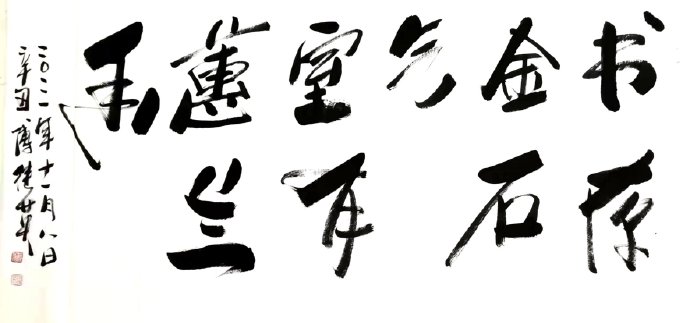 书存
金石
气
室有
蕙兰
香
二〇二一年十一月八日
辛丑